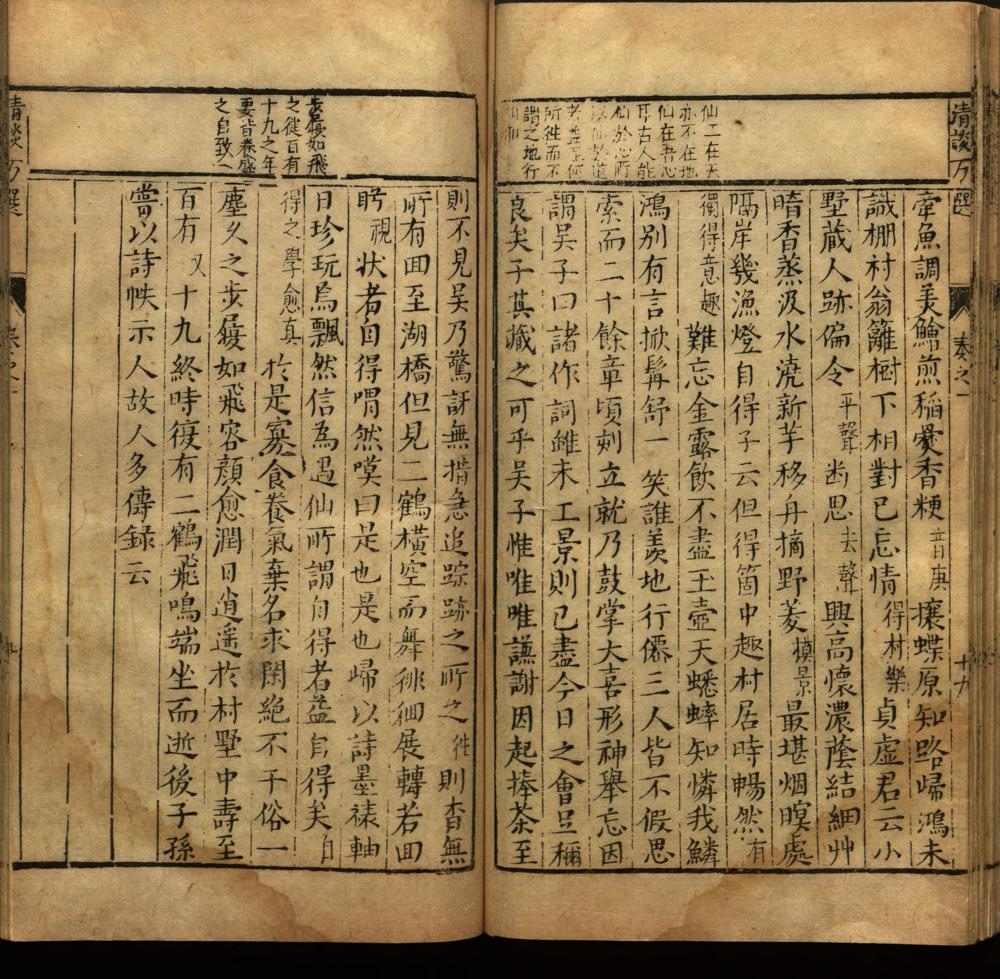 清談万選
卷之一
十九
仙工在天
亦不在地
仙在吾心
耳古人能
仙於心所
所徃而不
謂之地行
仙
牽魚調美鱠煎稻爨香粳音庚攘蝶原知路歸鴻未
識棚村翁籬樹下相對已忘情得村樂貞虛君云小
墅蔵人跡偏令平聲㫁思去聲興高懷濃蔭結細艸
晴香蒸汲水澆新芋移舟摘野菱模景最堪烟暝處
隔岸幾漁燈自得子云但得箇中趣村居時暢然有
獨得意趣難忘金露飲不盡玉壺天蟋蟀知憐我鱗
鴻別有言掀髯舒一笑誰羨地行僊三人皆不假思
索而二十餘章頃刻立就乃鼓掌大喜形神舉忘因
謂吴子曰諸作詞雖未工景則已盡今日之會豈穪
良矣子其藏之可乎吴子惟唯唯謙謝因起捧茶至
步履如飛
之徙百有
十九之年
要皆養盛
之自致
則不見吴乃驚訝無措急追踪跡之所之徃則杳無
所有囬至湖橋但見二鶴橫空而舞徘徊展轉若囬
盻視狀者自得喟然嘆曰是也是也歸以詩墨裱軸
日珍玩焉飄然信為遇仙所謂自得者益自得矣自
得之學愈真於是寡食養氣棄名求閑絶不干俗一
塵久之步履如飛容顔愈潤日逍遥於村墅中壽至
百有又十九終時復有二鶴飛鳴端坐而逝後子孫
嘗以詩帙示人故人多傳録云
清談万選